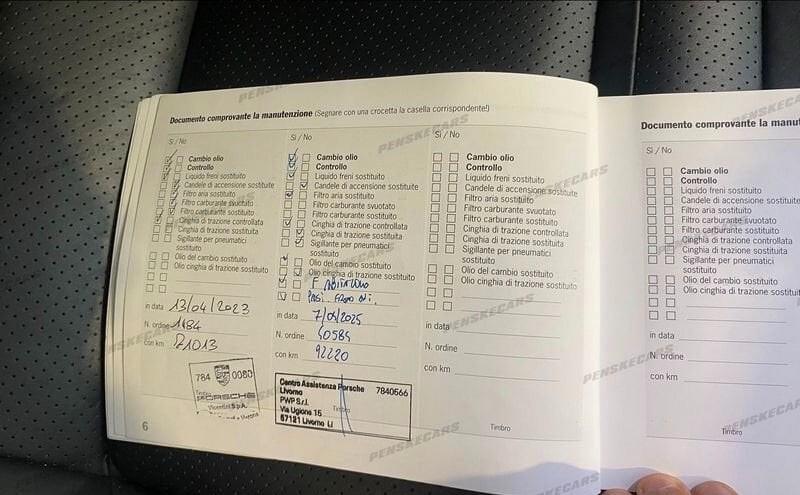 Documento comprovante la manutenzione (Segnare con una crocetta la casella corrispondente!)
Si / No
Cambio olio
Controllo
Liquido freni sostituito
Candele di accensione sostituite
Filtro aria sostituito
Filtro carburante svuotato
Filtro carburante sostituito
Cinghia di trazione controllata
Cinghia di trazione sostituita
Sigillante per pneumatici
sostituito
Olio del cambio sostituito
Olio cinghia di trazione sostituito
in data 13/04/2023
N. ordine 1484
con km 71013
784 0080
PORSCHE
Vicentini S.p.A.
6
Si / No
Cambio olio
Controllo
Liquido freni sostituito
Candele di accensione sostituite
Filtro aria sostituito
Filtro carburante svuotato
Filtro carburante sostituito
Cinghia di trazione controllata
Cinghia di trazione sostituita
Sigillante per pneumatici
sostituito
Olio del cambio sostituito
Olio cinghia di trazione sostituito
F. ABITACOLO
in data 7/04/2025
N. ordine 50584
con km 92220
Centro Assistenza Porsche 7840566
Livorno
PWP S.r.l.
Via Ugione 15 Timbro
57121 Livorno LI
Si / No
Cambio olio
Controllo
Liquido freni sostituito
Candele di accensione sostituite
Filtro aria sostituito
Filtro carburante svuotato
Filtro carburante sostituito
Cinghia di trazione controllata
Cinghia di trazione sostituita
Sigillante per pneumatici
sostituito
Olio del cambio sostituito
Olio cinghia di trazione sostituito
in data
N. ordine
con km
Timbro
Documento comprovante la manut
Si / No
Cambio olio
Controllo
Liquido freni sostituito
Candele di accensione sostituite
Filtro aria sostituito
Filtro carburante svuotato
Filtro carburante sostituito
Cinghia di trazione controllata
Cinghia di trazione sostituita
Sigillante per pneumatici
sostituito
Olio del cambio sostituito
Olio cinghia di trazione sostituit
in data
N. ordine
con km
Timbro
PENSKECARS
PENSKECARS
PENSKECARS
PENSKECARS
PENSKECARS
PENSKECARS